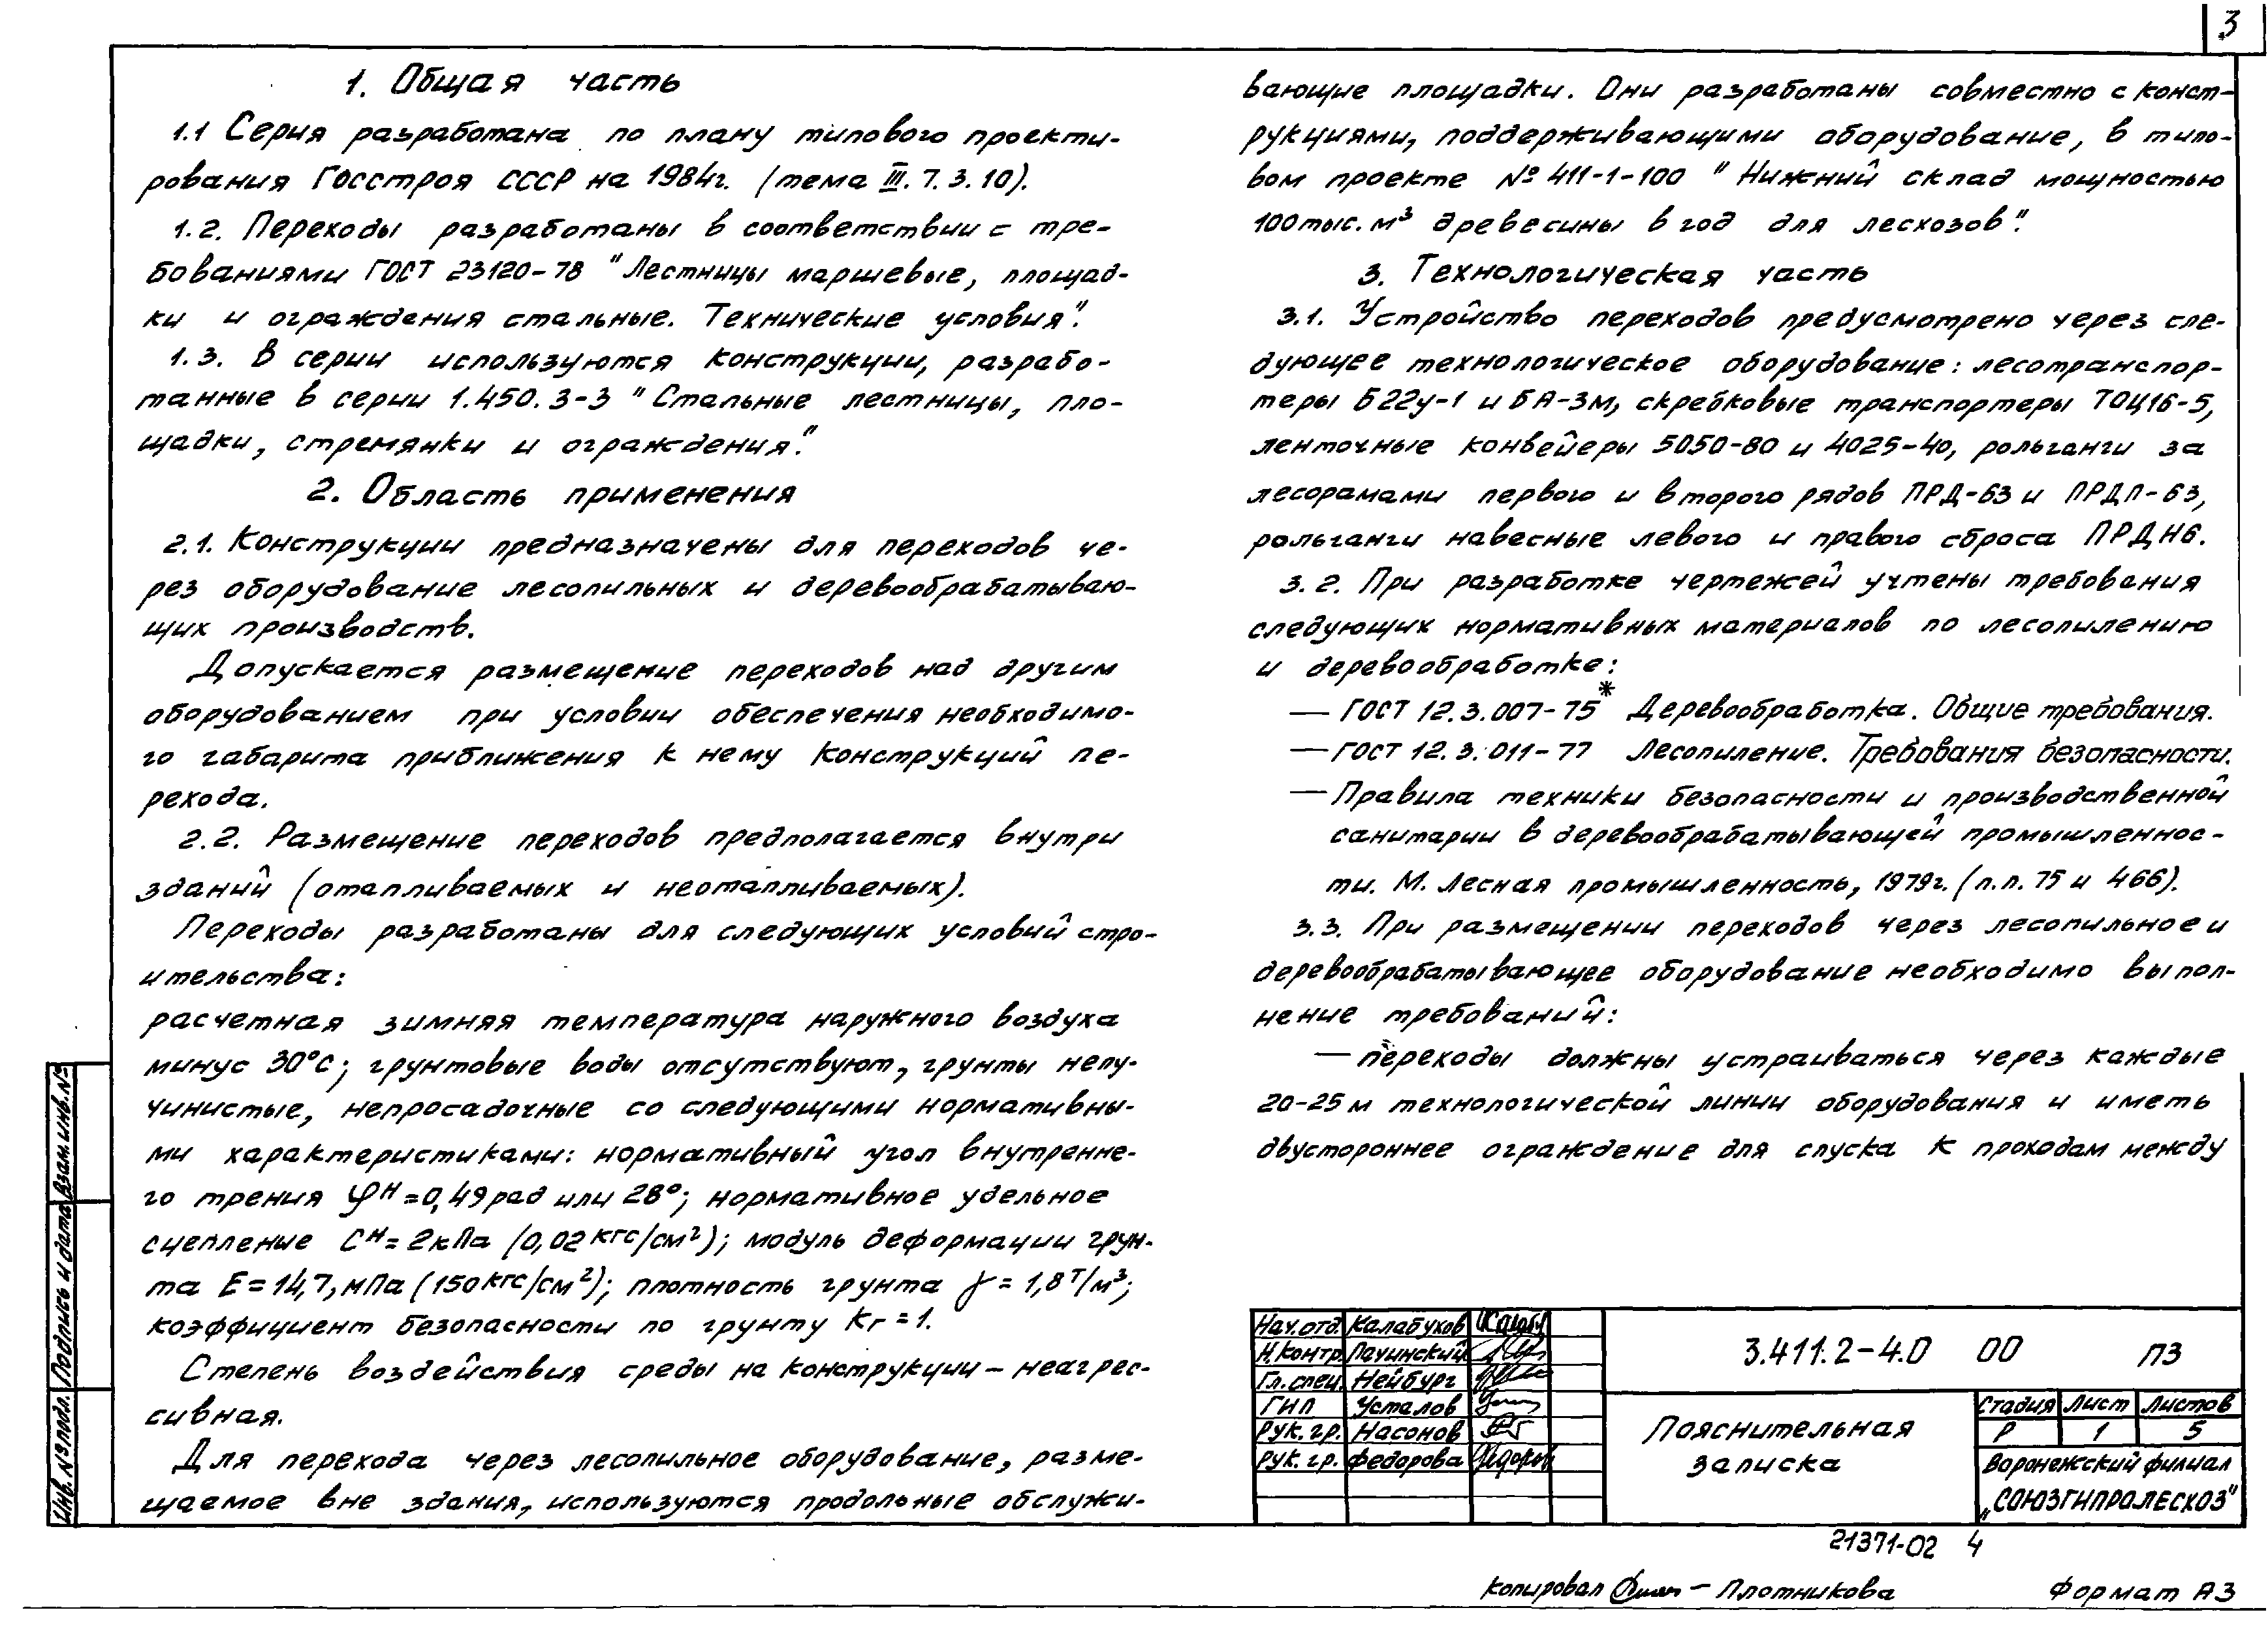 3
1. Общая часть
1.1 Серия разработана по плану типового проекти-
рования Госстроя СССР на 1984г. (тема III. 7. 3. 10).
1.2. Переходы разработаны в соответствии с тре-
бованиями ГОСТ 23120-78 "Лестницы маршевые, площад-
ки и ограждения стальные. Технические условия".
1.3. В серии используются конструкции, разрабо-
танные в серии 1.450.3-3 "Стальные лестницы, пло-
щадки, стремянки и ограждения".
2. Область применения
2.1. Конструкции предназначены для переходов че-
рез оборудование лесопильных и деревообрабатываю-
щих производств.
Допускается размещение переходов над другим
оборудованием при условии обеспечения необходимо-
го габарита приближения к нему конструкций пе-
рехода.
2.2. Размещение переходов предполагается внутри
зданий (отапливаемых и неотапливаемых).
Переходы разработаны для следующих условий стро-
ительства:
расчетная зимняя температура наружного воздуха
минус 30°С; грунтовые воды отсутствуют, грунты непу-
чинистые, непросадочные со следующими нормативны-
ми характеристиками: нормативный угол внутренне-
го трения φᴴ=0,49 рад или 28°; нормативное удельное
сцепление Cᴴ=2кПа (0,02 кгс/см²); модуль деформации грун-
та E=14,7, мПа (150 кгс/см²); плотность грунта γ=1,8 т/м³;
коэффициент безопасности по грунту Kг=1.
Степень воздействия среды на конструкции - неагрес-
сивная.
Для перехода через лесопильное оборудование, разме-
щаемое вне здания, используются продольные обслужи-
вающие площадки. Они разработаны совместно с конст-
рукциями, поддерживающими оборудование, в типо-
вом проекте № 411-1-100 "Нижний склад мощностью
100 тыс. м³ древесины в год для лесхозов".
3. Технологическая часть
3.1. Устройство переходов предусмотрено через сле-
дующее технологическое оборудование: лесотранспор-
теры Б22у-1 и БА-3м, скребковые транспортеры ТОЦ16-5,
ленточные конвейеры 5050-80 и 4025-40, рольганги за
лесорамами первого и второго рядов ПРД-63 и ПРДП-63,
рольганги навесные левого и правого сброса ПРДН6.
3.2. При разработке чертежей учтены требования
следующих нормативных материалов по лесопилению
и деревообработке:
— ГОСТ 12.3.007-75* Деревообработка. Общие требования.
— ГОСТ 12.3.011-77 Лесопиление. Требования безопасности.
— Правила техники безопасности и производственной
санитарии в деревообрабатывающей промышленнос-
ти. М. Лесная промышленность, 1979г. (п.п. 75 и 466).
3.3. При размещении переходов через лесопильное и
деревообрабатывающее оборудование необходимо выпол-
нение требований:
— переходы должны устраиваться через каждые
20-25 м технологической линии оборудования и иметь
двустороннее ограждение для спуска к проходам между
Взам.инв.№
Подпись и дата
Инв. № подл.
Нач.отд. Калабухов
Н.контр. Пачинский
Гл.спец. Нейбург
ГИП Усталов
Рук. гр. Насонов
Рук. гр. Федорова
3.411.2-4.0 00 ПЗ
Пояснительная
записка
Стадия Лист Листов
Р 1 5
Воронежский филиал
„СОЮЗГИПРОЛЕСХОЗ"
21371-02 4
Копировал - Плотникова Формат А3